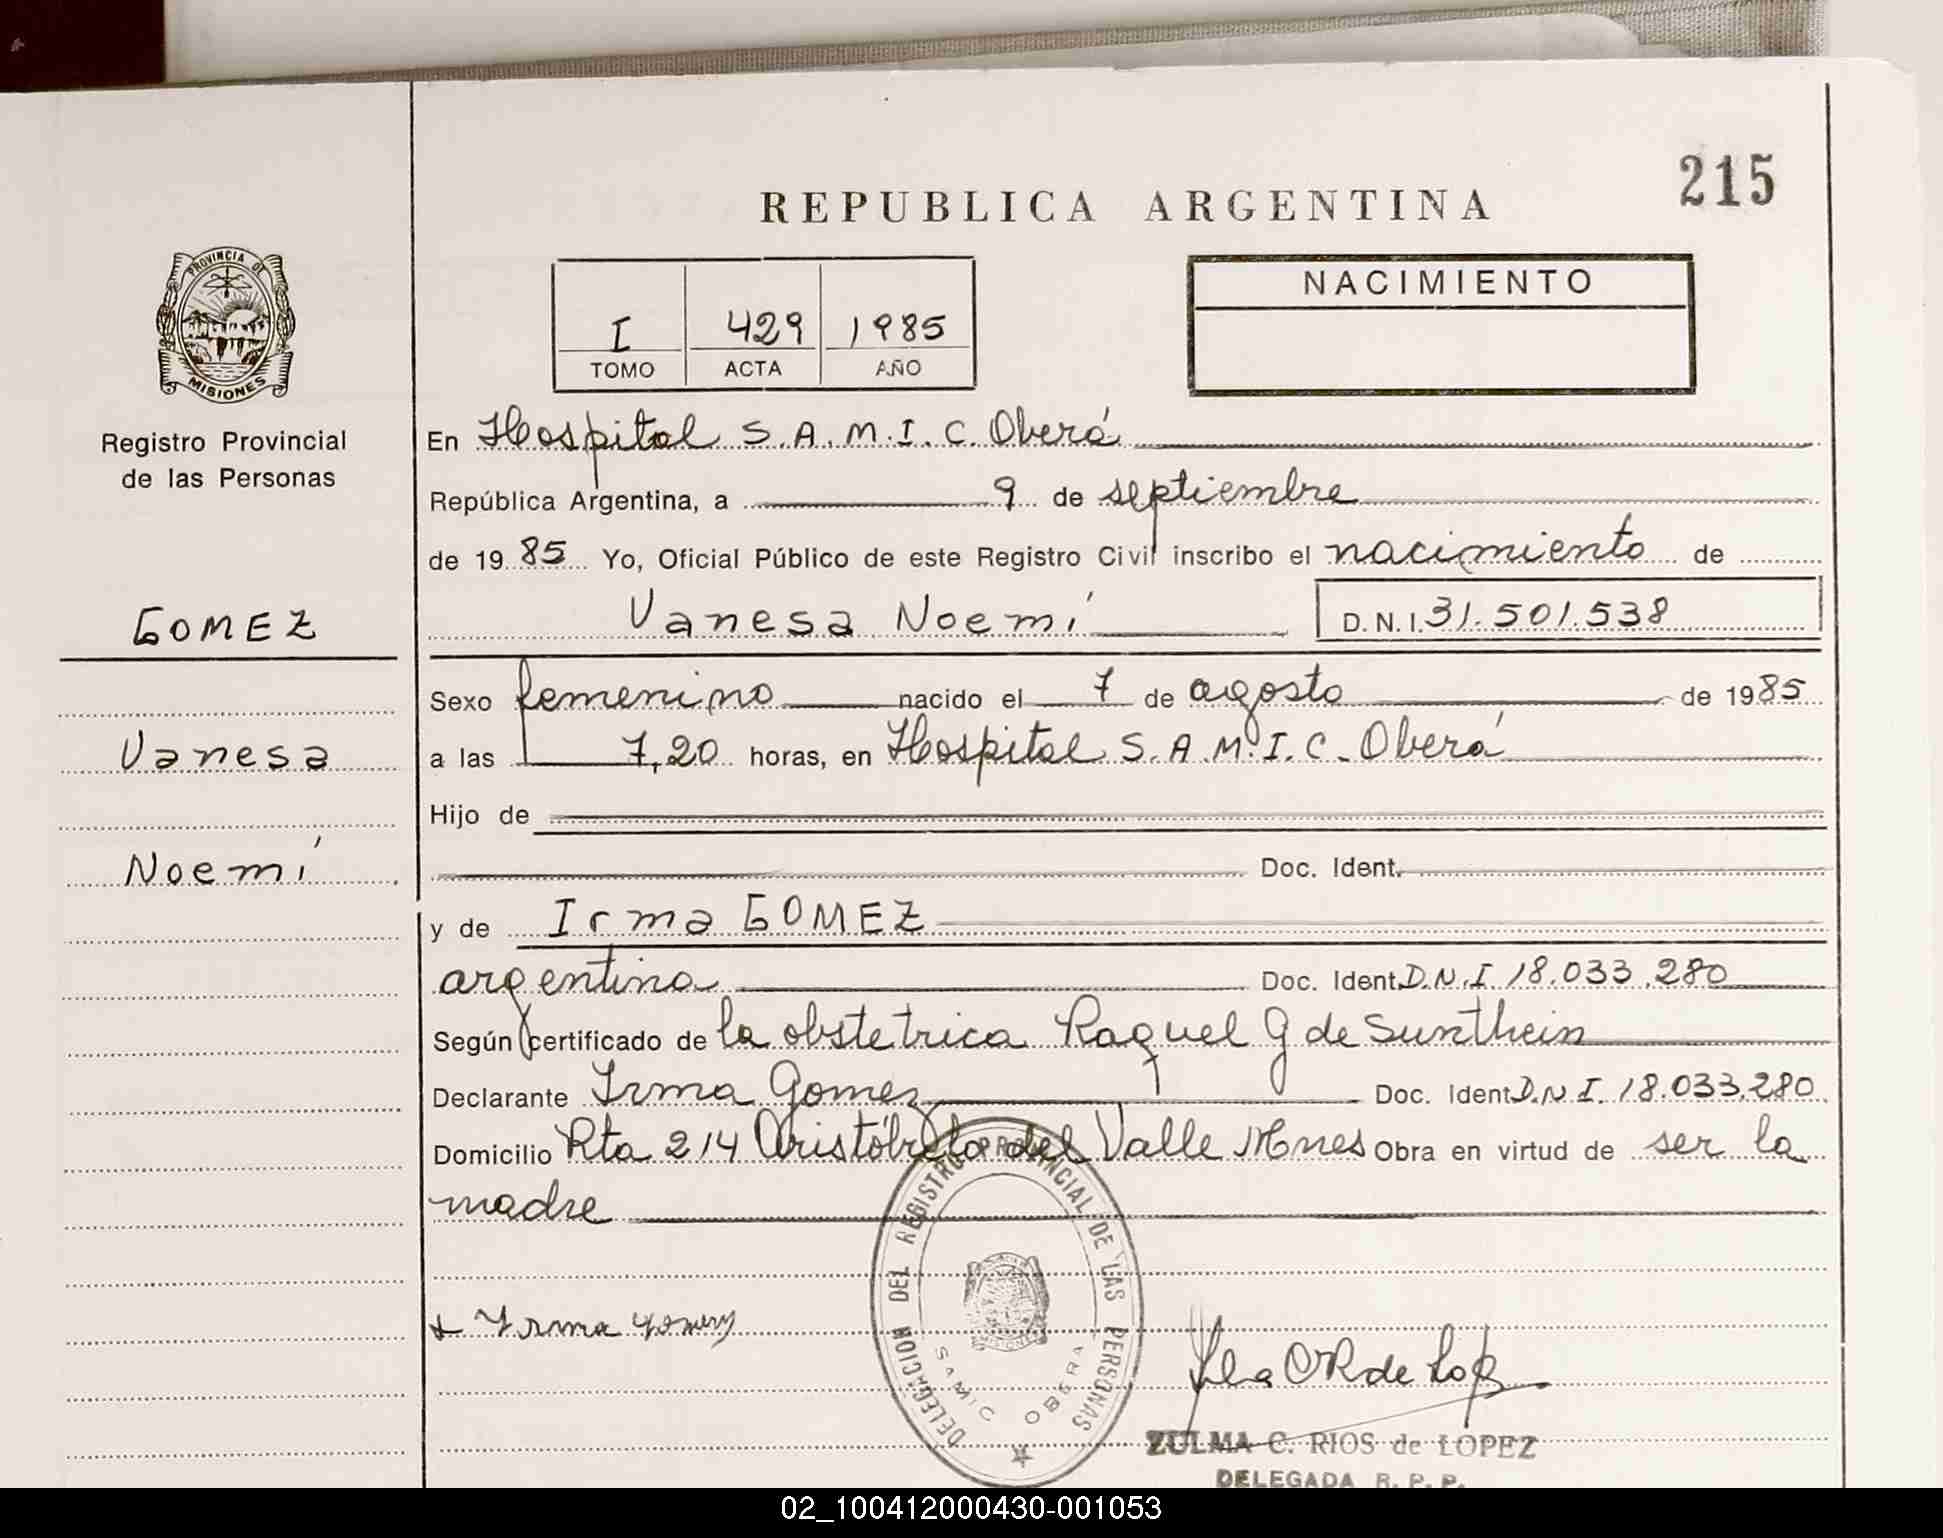 215
REPUBLICA ARGENTINA
PROVINCIA DE
MISIONES
Registro Provincial
de las Personas
I 429 1985
TOMO ACTA AÑO
NACIMIENTO
En Hospital S.A.M.I.C. Oberá
República Argentina, a 9 de septiembre
de 1985 Yo, Oficial Público de este Registro Civil inscribo el nacimiento de
GOMEZ
Vanesa Noemí D.N.I. 31.501.538
Sexo femenino nacido el 7 de agosto de 1985
Vanesa
a las 7,20 horas, en Hospital S.A.M.I.C. Oberá
Hijo de
Noemí
Doc. Ident.
y de Irma GOMEZ
argentina Doc. Ident. D.N.I. 18.033.280
Según certificado de la obstetrica Raquel G de Sunthein
Declarante Irma Gomez Doc. Ident. D.N.I. 18.033.280
Domicilio Rta 214 Aristóbulo del Valle Mnes Obra en virtud de ser la
madre
DELEGACION DEL REGISTRO PROVINCIAL DE LAS PERSONAS
SAMIC OBERA
Irma Gomez
ZULMA C. RIOS de LOPEZ
DELEGADA R. P. P.
02_100412000430-001053